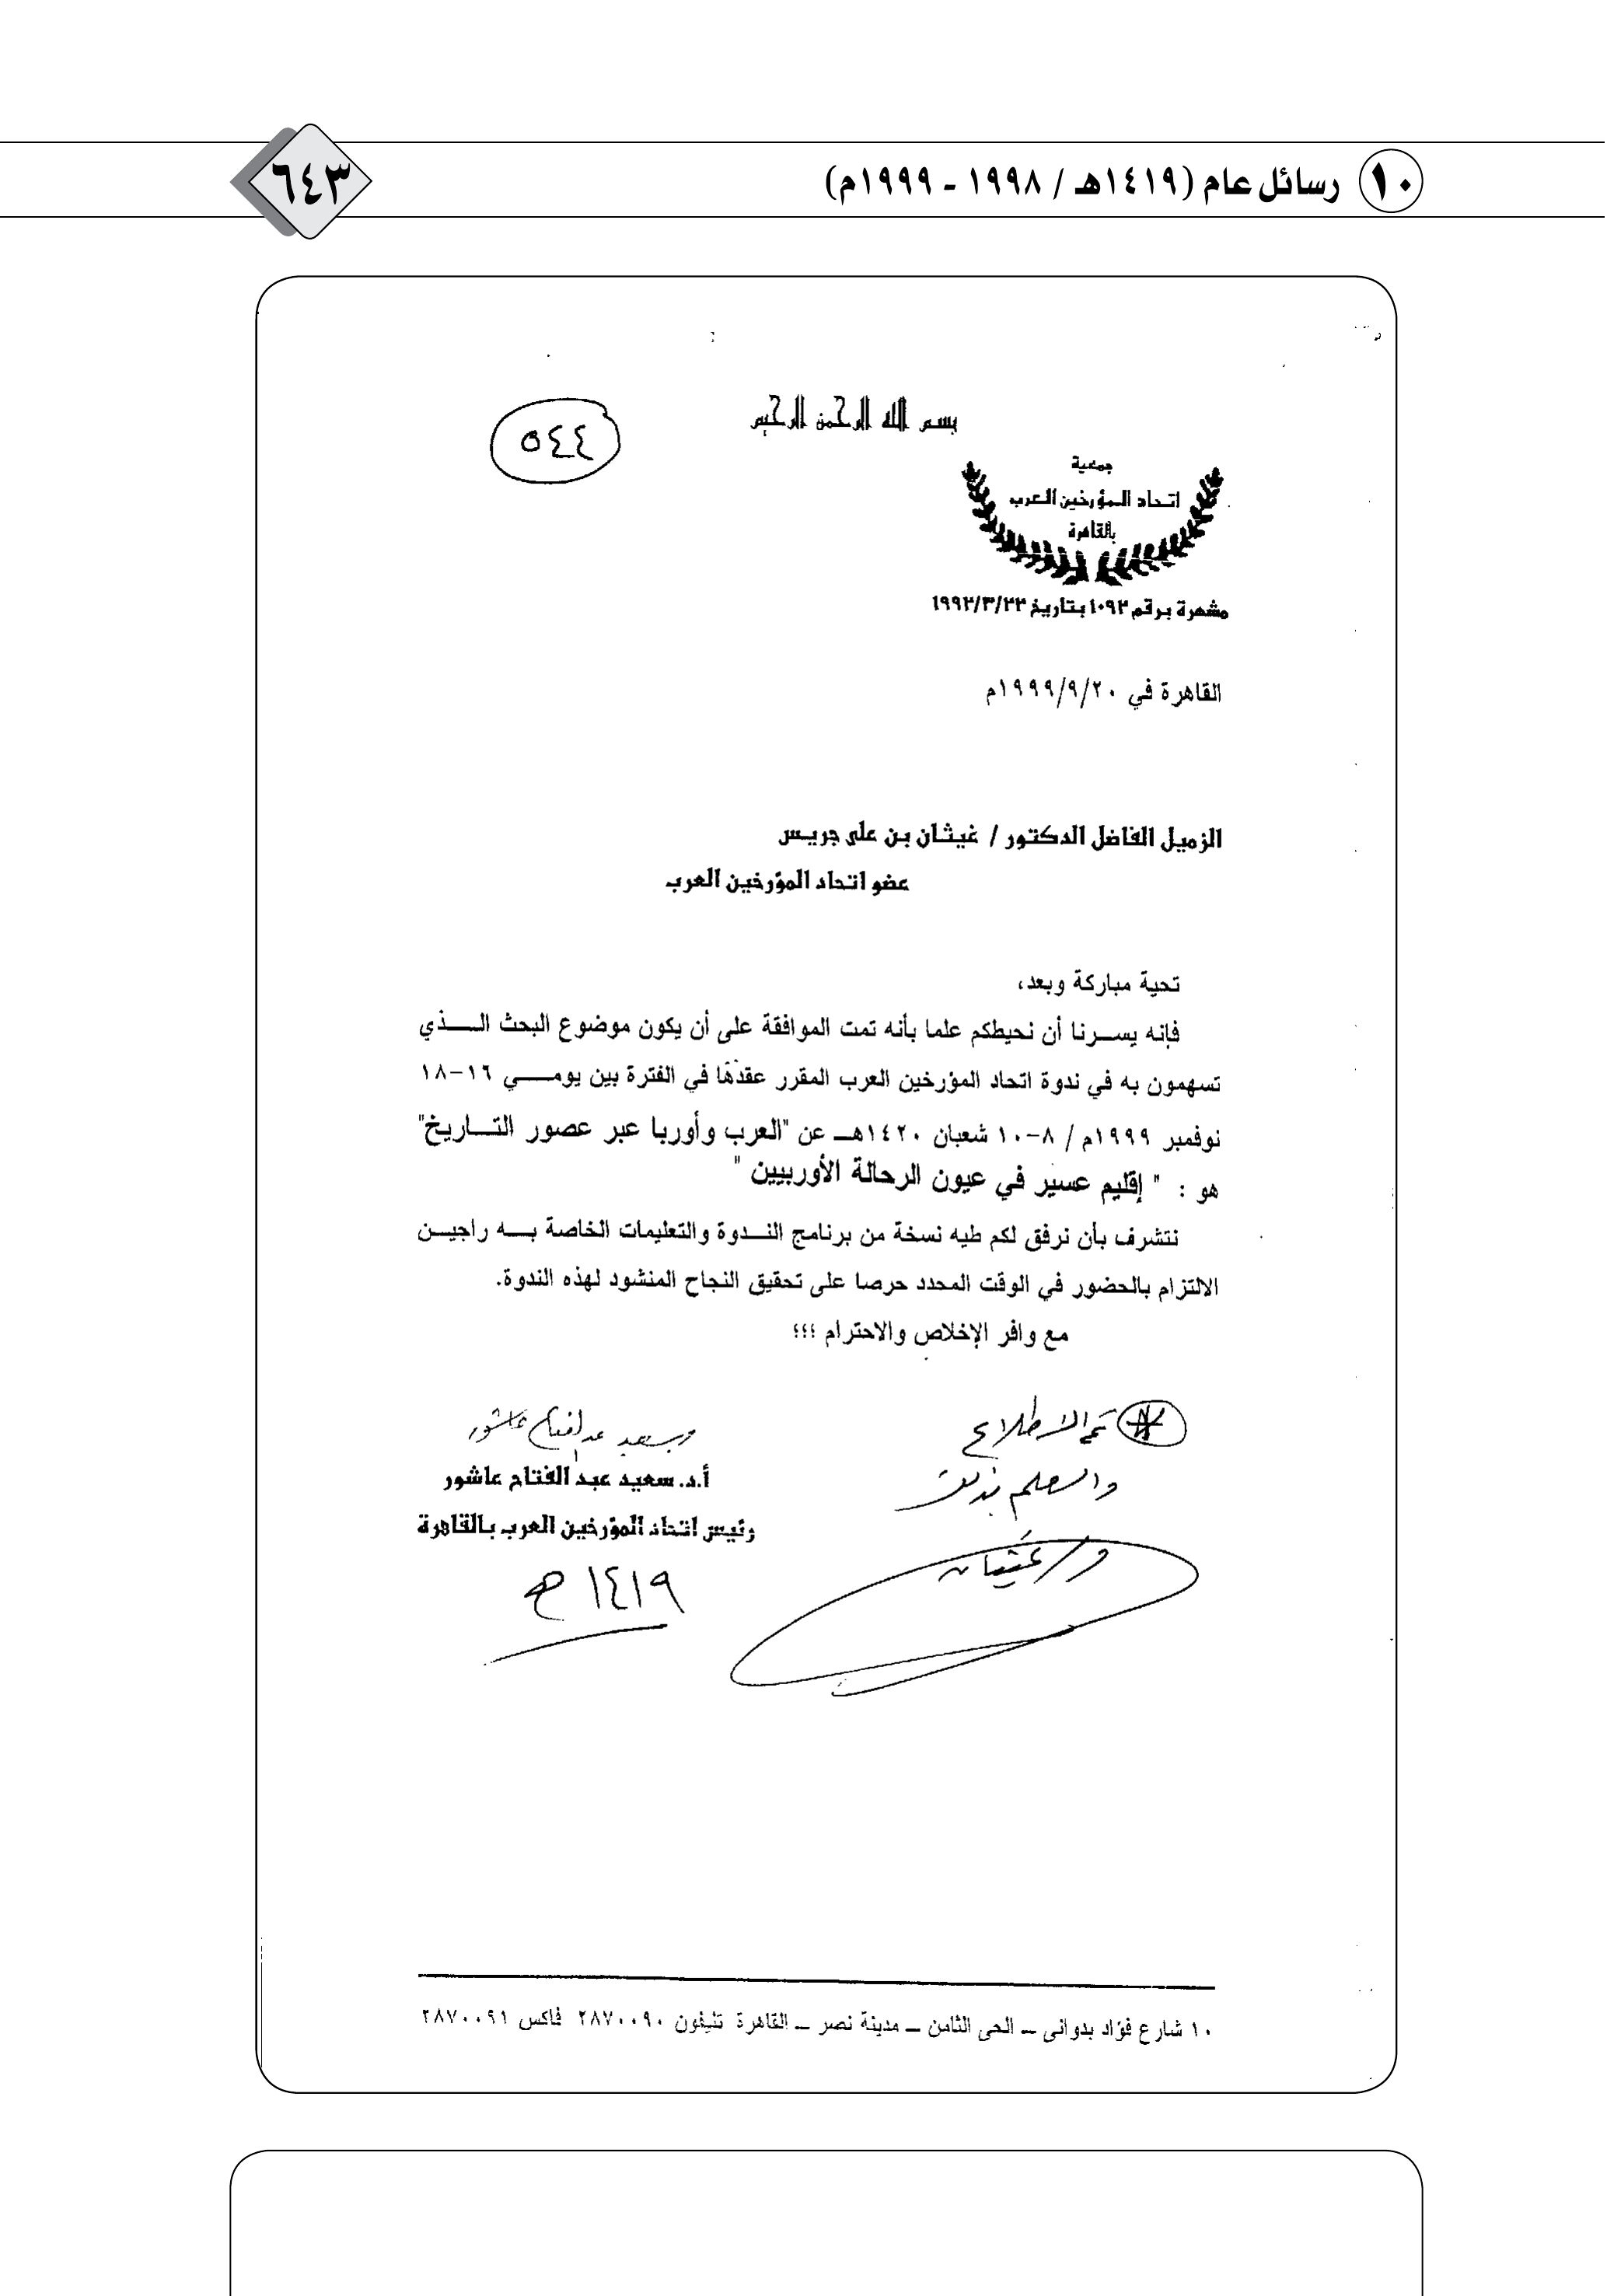 ١٠ رسائل عام (١٤١٩هـ / ١٩٩٨ - ١٩٩٩م)
٦٤٣
بسم الله الرحمن الرحيم
٥٤٤
جمعية
اتحاد المؤرخين العرب
بالقاهرة
مشهرة برقم ١٠٩٢ بتاريخ
القاهرة في ١٩٩٩/٩/٢٠م
الزميل الفاضل الدكتور / غيثان بن على جريس
عضو اتحاد المؤرخين العرب
تحية مباركة وبعد،
فإنه يســرنا أن نحيطكم علما بأنه تمت الموافقة على أن يكون موضوع البحث الـــذي
تسهمون به في ندوة اتحاد المؤرخين العرب المقرر عقدها في الفترة بين يومـــي ١٦-١٨
نوفمبر ١٩٩٩م / ٨-١٠ شعبان ١٤٢٠هـ عن "العرب وأوربا عبر عصور التـــاريخ"
هو : " إقليم عسير في عيون الرحالة الأوربيين "
نتشرف بأن نرفق لكم طيه نسخة من برنامج النــدوة والتعليمات الخاصة بــه راجيــن
الالتزام بالحضور في الوقت المحدد حرصا على تحقيق النجاح المنشود لهذه الندوة.
مع وافر الإخلاص والاحترام ؛؛؛
تم الاطلاع
والعلم بذلك
د/ غيثان
سعيد عبد الفتاح عاشور
أ.د. سعيد عبد الفتاح عاشور
رئيس اتحاد المؤرخين العرب بالقاهرة
١٤١٩ هـ
١٠ شارع فؤاد بدوانى ــ الحى الثامن ــ مدينة نصر ــ القاهرة تليفون ٢٨٧٠٠٩٠ فاكس ٢٨٧٠٠٩١